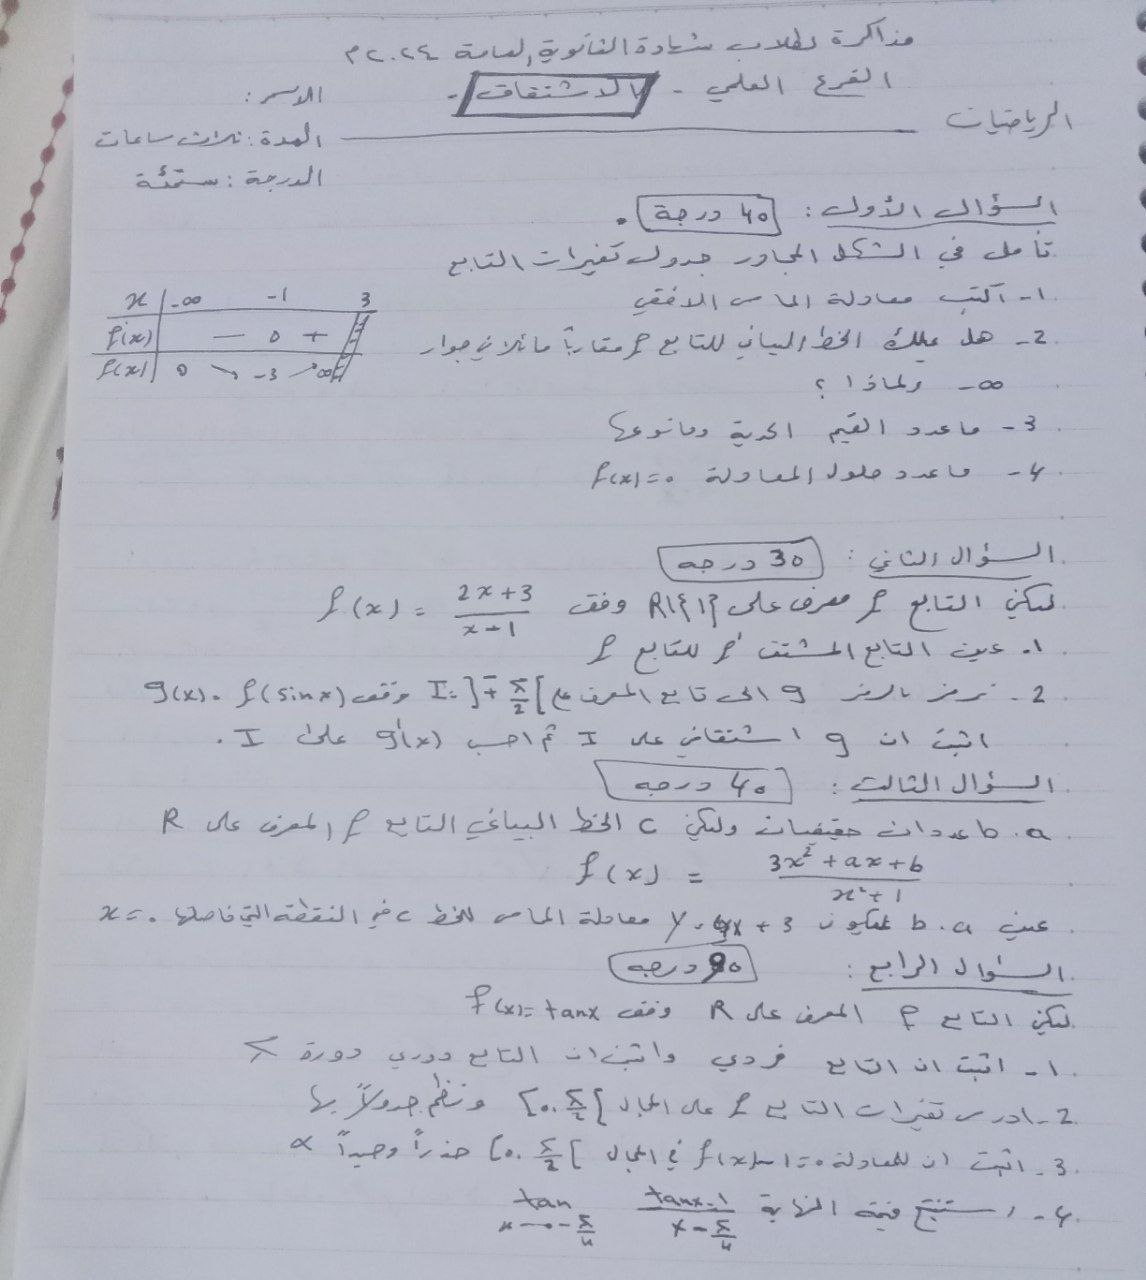 مذاكرة لطلاب شهادة الثانوية العامة ٢٠٢٤ م
الفرع العلمي - الاشتقاق -
الاسم:
الرياضيات
المدة: ثلاث ساعات
الدرجة: ستمئة
السؤال الأول: 40 درجة.
تأمل في الشكل المجاور جدول تغيرات التابع
x | -∞ -1 3
f'(x) | - 0 +
f(x) | 0 ↘ -3 ↗ ∞
1- اكتب معادلة المماس الافقي
2- هل يملك الخط البياني للتابع f مقارباً مائلاً في جوار
-∞ ولماذا؟
3- ماعدد القيم الحدية ومانوعها
4- ماعدد حلول المعادلة f(x)=0
السؤال الثاني: 30 درجه
ليكن التابع f معرف على R\{1} وفق f(x) = (2x+3)/(x-1)
1- عين التابع المشتق f' للتابع f
2- نرمز بالرمز g الى تابع المعرف على I = ]-π/2, π/2[ وفق g(x) = f(sinx)
اثبت ان g اشتقاقي على I ثم احسب g'(x) على I.
السؤال الثالث: 40 درجه
a, b عددان حقيقيان وليكن C الخط البياني التابع f المعرف على R
f(x) = (3x²+ax+b)/(x²+1)
عين a, b ليكون y=4x+3 معادلة المماس للخط C في النقطة التي فاصلها x=0
السؤال الرابع: 90 درجه
ليكن التابع f المعرف على R وفق f(x)=tanx
1- اثبت ان التابع فردي واثبت ان التابع دوري دورة π
2- ادرس تغيرات التابع f على المجال [0, π/2[ ونظم جدولاً بها
3- اثبت ان للمعادلة f(x)-1=0 في المجال [0, π/2[ جذراً وحيداً α
4- استنتج قيمة النهاية tan x→-π/4 (tanx-1)/(x-π/4)